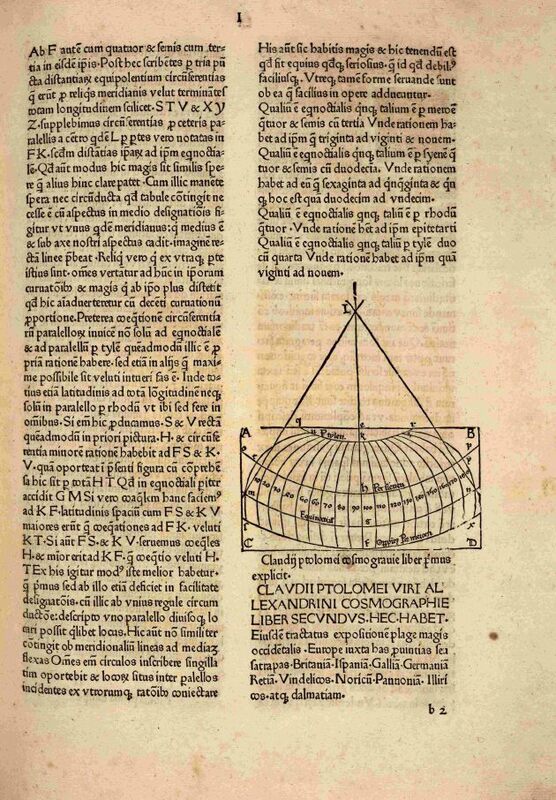 I
Ab F autē cum quatuor & semis cum ter-
tia in eisdē ip̄is. Post hec scribētes p̄ tria pū
cta distantiarʒ equipolentium circūferentias
q̄ erūt p̄ reliq̄s meridianis velut termīates
totam longitudinem scilicet. S T V & X Y
Z. supplebimus circūferentias p̄ ceteris pa-
ralellis a cētro qdē L p̄ ptes vero notatas in
F K. scdm̄ distātias ipaɽ ad ip̄m eqnoctia-
le. Qd aūt modus hic magis sit similis spe
re q̄ alius hinc clare patet. Cum illic manēte
spera nec circūducta qd tabule cōtingit ne
cesse ē cū aspectus in medio designatiōis fi-
gitur vt vnus qdē meridianus: q̄ medius ē
& sub axe nostri aspectus cadit. imaginē re-
ctā linee p̄beat. Reliq̄ vero q̄ ex vtraq̄ pte
istius sunt. om̄es vertātur ad hūc in ip̄orum
curuatōib & magis q̄ ab ip̄o plus distetit
qd hic aīaduerteretur cū decēti curuationū
p̄portione. Preterea coeqtiōnē circūferentia
rū paralellorʒ inuicē nō solū ad eqnoctialē
& ad paralellū p̄ tylē queadmodū illic ē p̄
priā rationē habere. sed etiā in alijs q̄ maxi-
me possibile sit veluti intueri fas ē. Inde to-
tius etiā latitudinis ad totā logitudinē neq̄
solū in paralello p̄ rhodū vt ibi sed fere in
omnibus. Si em̄ hic p̄ducamus. S & V rectā
queadmodū in priori pictura. H. & circūfe
rentia minorē rationē habebit ad F S & K
V. quā oporteat ī p̄senti figura cū cōprehē
sa hic sit p̄ totā H T Qd in eqnoctiali piter
accidit G M Si vero coaq̄lem hanc faciem̄
ad K F. latitudinis spaciū cum F S & K V
maiores erūt q̄ coeqtiōnes ad F K. veluti
K T. Si aūt F S. & K V. seruemus coeqles
H. & mīor erit ad K F. q̄ coeqtio veluti H.
T Ex his igitur mod iste melior habetur.
q̄ p̄mus sed ab illo etiā deficiet in facilitate
designatōis. cū illic ab vnius regule circum
ductōe: descripto vno paralello diuisoq̄ lo
cari possit qlibet locus. Hic aūt nō similiter
cōtingit ob meridionaliū lineas ad mediā
flexas Om̄es em̄ circulos inscribere singilla
tim oportebit & locorʒ situs inter palellos
incidentes ex vtrorumq̄ ratōib coniectare
His aūt sic habitis magis & hic tenendū est
qd sit equius qdq̄ seriosius. q̄ id qd debil
faciliusq̄. Vtreq̄ tamē forme seruande sunt
ob ea q̄ facilius in opere adducuntur.
Qualiū ē eqnoctialis qnq̄ talium ē p̄ meroē
q̄tuor & semis cū tertia Vnde rationem ha-
bet ad ip̄m q̄ triginta ad viginti & nouem.
Qualiū ē eqnoctialis qnq̄. talium ē p̄ syenē q̄
tuor & semis cū duodecia. Vnde rationem
habet ad eū q̄ sexaginta ad qnqginta & qn
q̄ hoc est qua duodecim ad vndecim.
Qualiū ē eqnoctialis qnq̄. taliū ē p̄ rhodū
q̄tuor. Vnde rationē het ad ip̄m epitetarti
Qualiū ē eqnoctialis qnq̄ taliū p̄ tylē duo
cū quarta Vnde rationē habet ad ip̄m quā
viginti ad nouem.
L
q e r
A B
n P tylen k
o p
h P sienem
m
10 20 30 40 50 60 70 80 90 100 110 120 130 140 150 160 170 180
Equinoctial g
s
C F Opposit P meroem D
Claudij ptolomei cosmograuie liber p̄mus
explicit.
CLAVDII PTOLOMEI VIRI AL
LEXANDRINI COSMOGRAPHIE
LIBER SECVNDVS. HEC HABET.
Eiusdē tractatus expositionē plage magis
occidētalis. Europe iuxta has p̄uintias seu
satrapas. Britaniā. Ispaniā. Galliā. Germaniā
Retiā. Vindelicos. Noricū. Pannoniā. Illiri
cos. atq̄ dalmatiam.
b 2